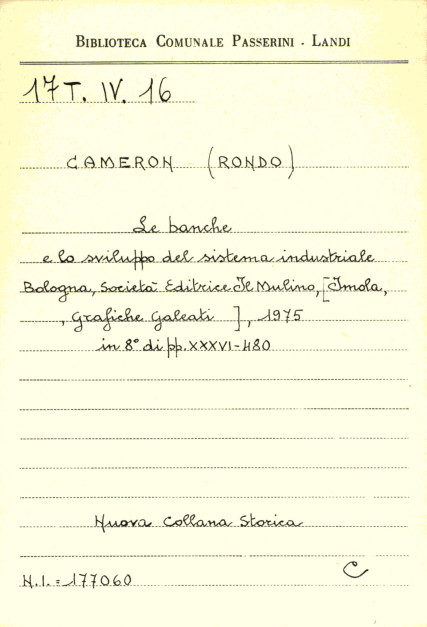 BIBLIOTECA COMUNALE PASSERINI - LANDI
17 T. IV. 16
CAMERON (RONDO)
Le banche
e lo sviluppo del sistema industriale
Bologna, Società Editrice Il Mulino, [Imola,
, Grafiche Galeati ], 1975
in 8° di pp. XXXVI-480
Nuova Collana Storica
N.I. = 177060
C